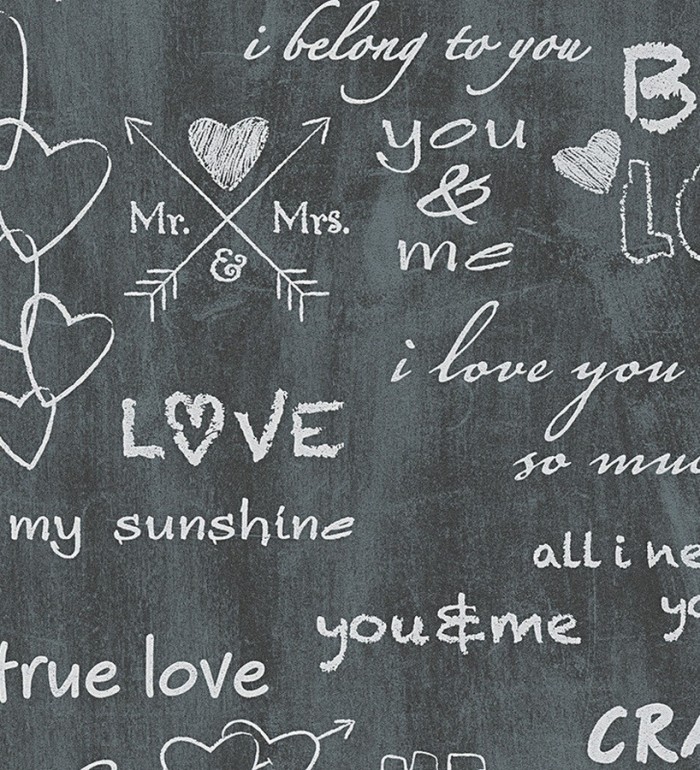 i belong to you
you
&
me
Mr. & Mrs.
i love you
so
LOVE
my sunshine
all i
you & me
true love